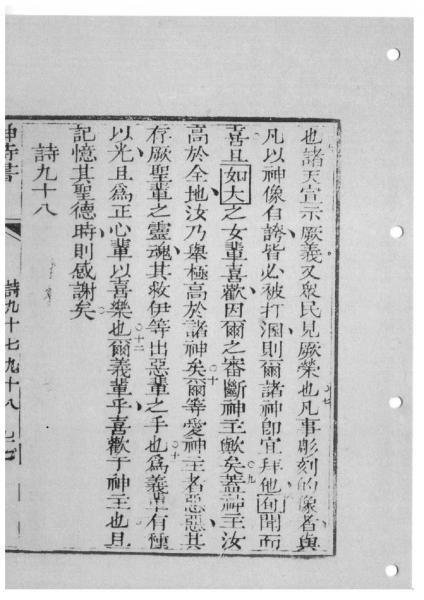 也諸天宣示厥義又眾民見厥榮也凡事彫刻的像者與
凡以神像自誇皆必被打溷則爾諸神卽宜拜他旬聞而
喜且如大之女輩喜歡因爾之審斷神主歟矣蓋神主汝
高於全地汝乃舉極高於諸神矣爾等愛神主者惡惡其
存厥聖輩之靈魂其救伊等出惡輩之手也爲義輩有種
以光且爲正心輩以喜樂也爾義輩乎喜歡于神主也且
記憶其聖德時則感謝矣
詩九十八
神詩書 詩九十七九十八